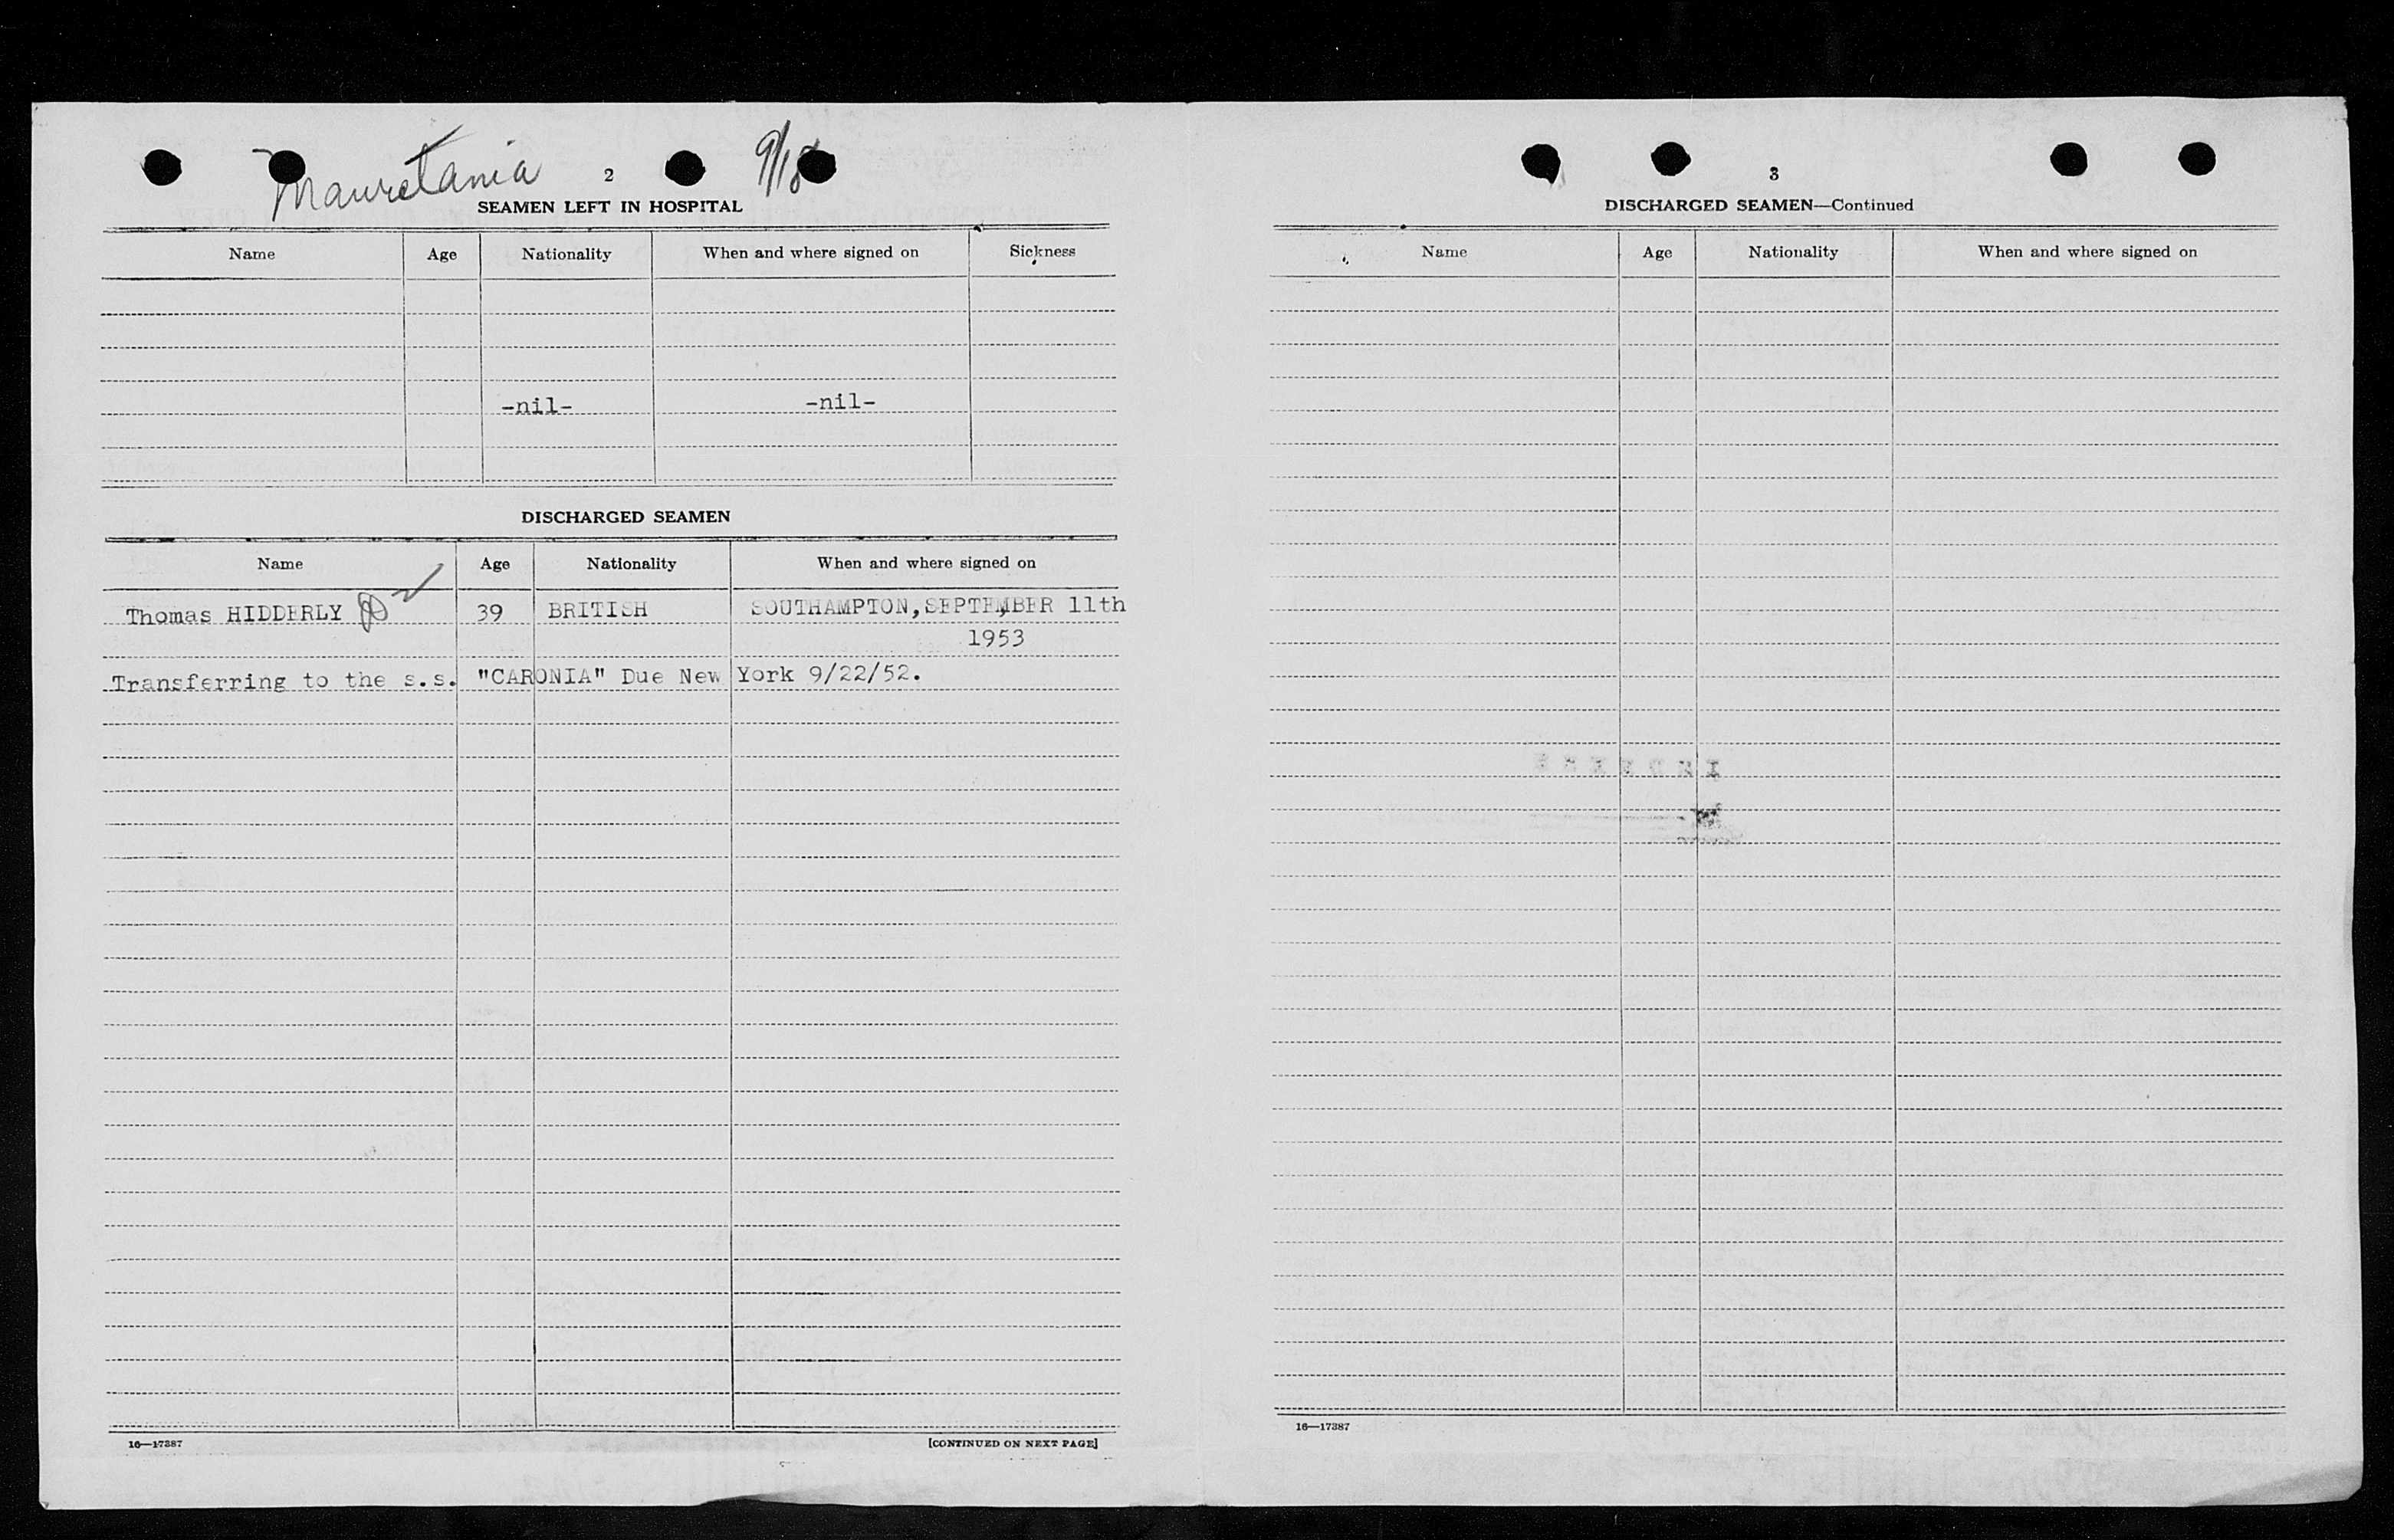 Mauretania 2 9/18
SEAMEN LEFT IN HOSPITAL
Name Age Nationality When and where signed on Sickness
-nil- -nil-
DISCHARGED SEAMEN
Name Age Nationality When and where signed on
Thomas HIDDERLY 39 BRITISH SOUTHAMPTON, SEPTEMBER 11th
1953
Transferring to the s.s. "CARONIA" Due New York 9/22/52.
16—17387
[CONTINUED ON NEXT PAGE]
3
DISCHARGED SEAMEN—Continued
Name Age Nationality When and where signed on
16—17387